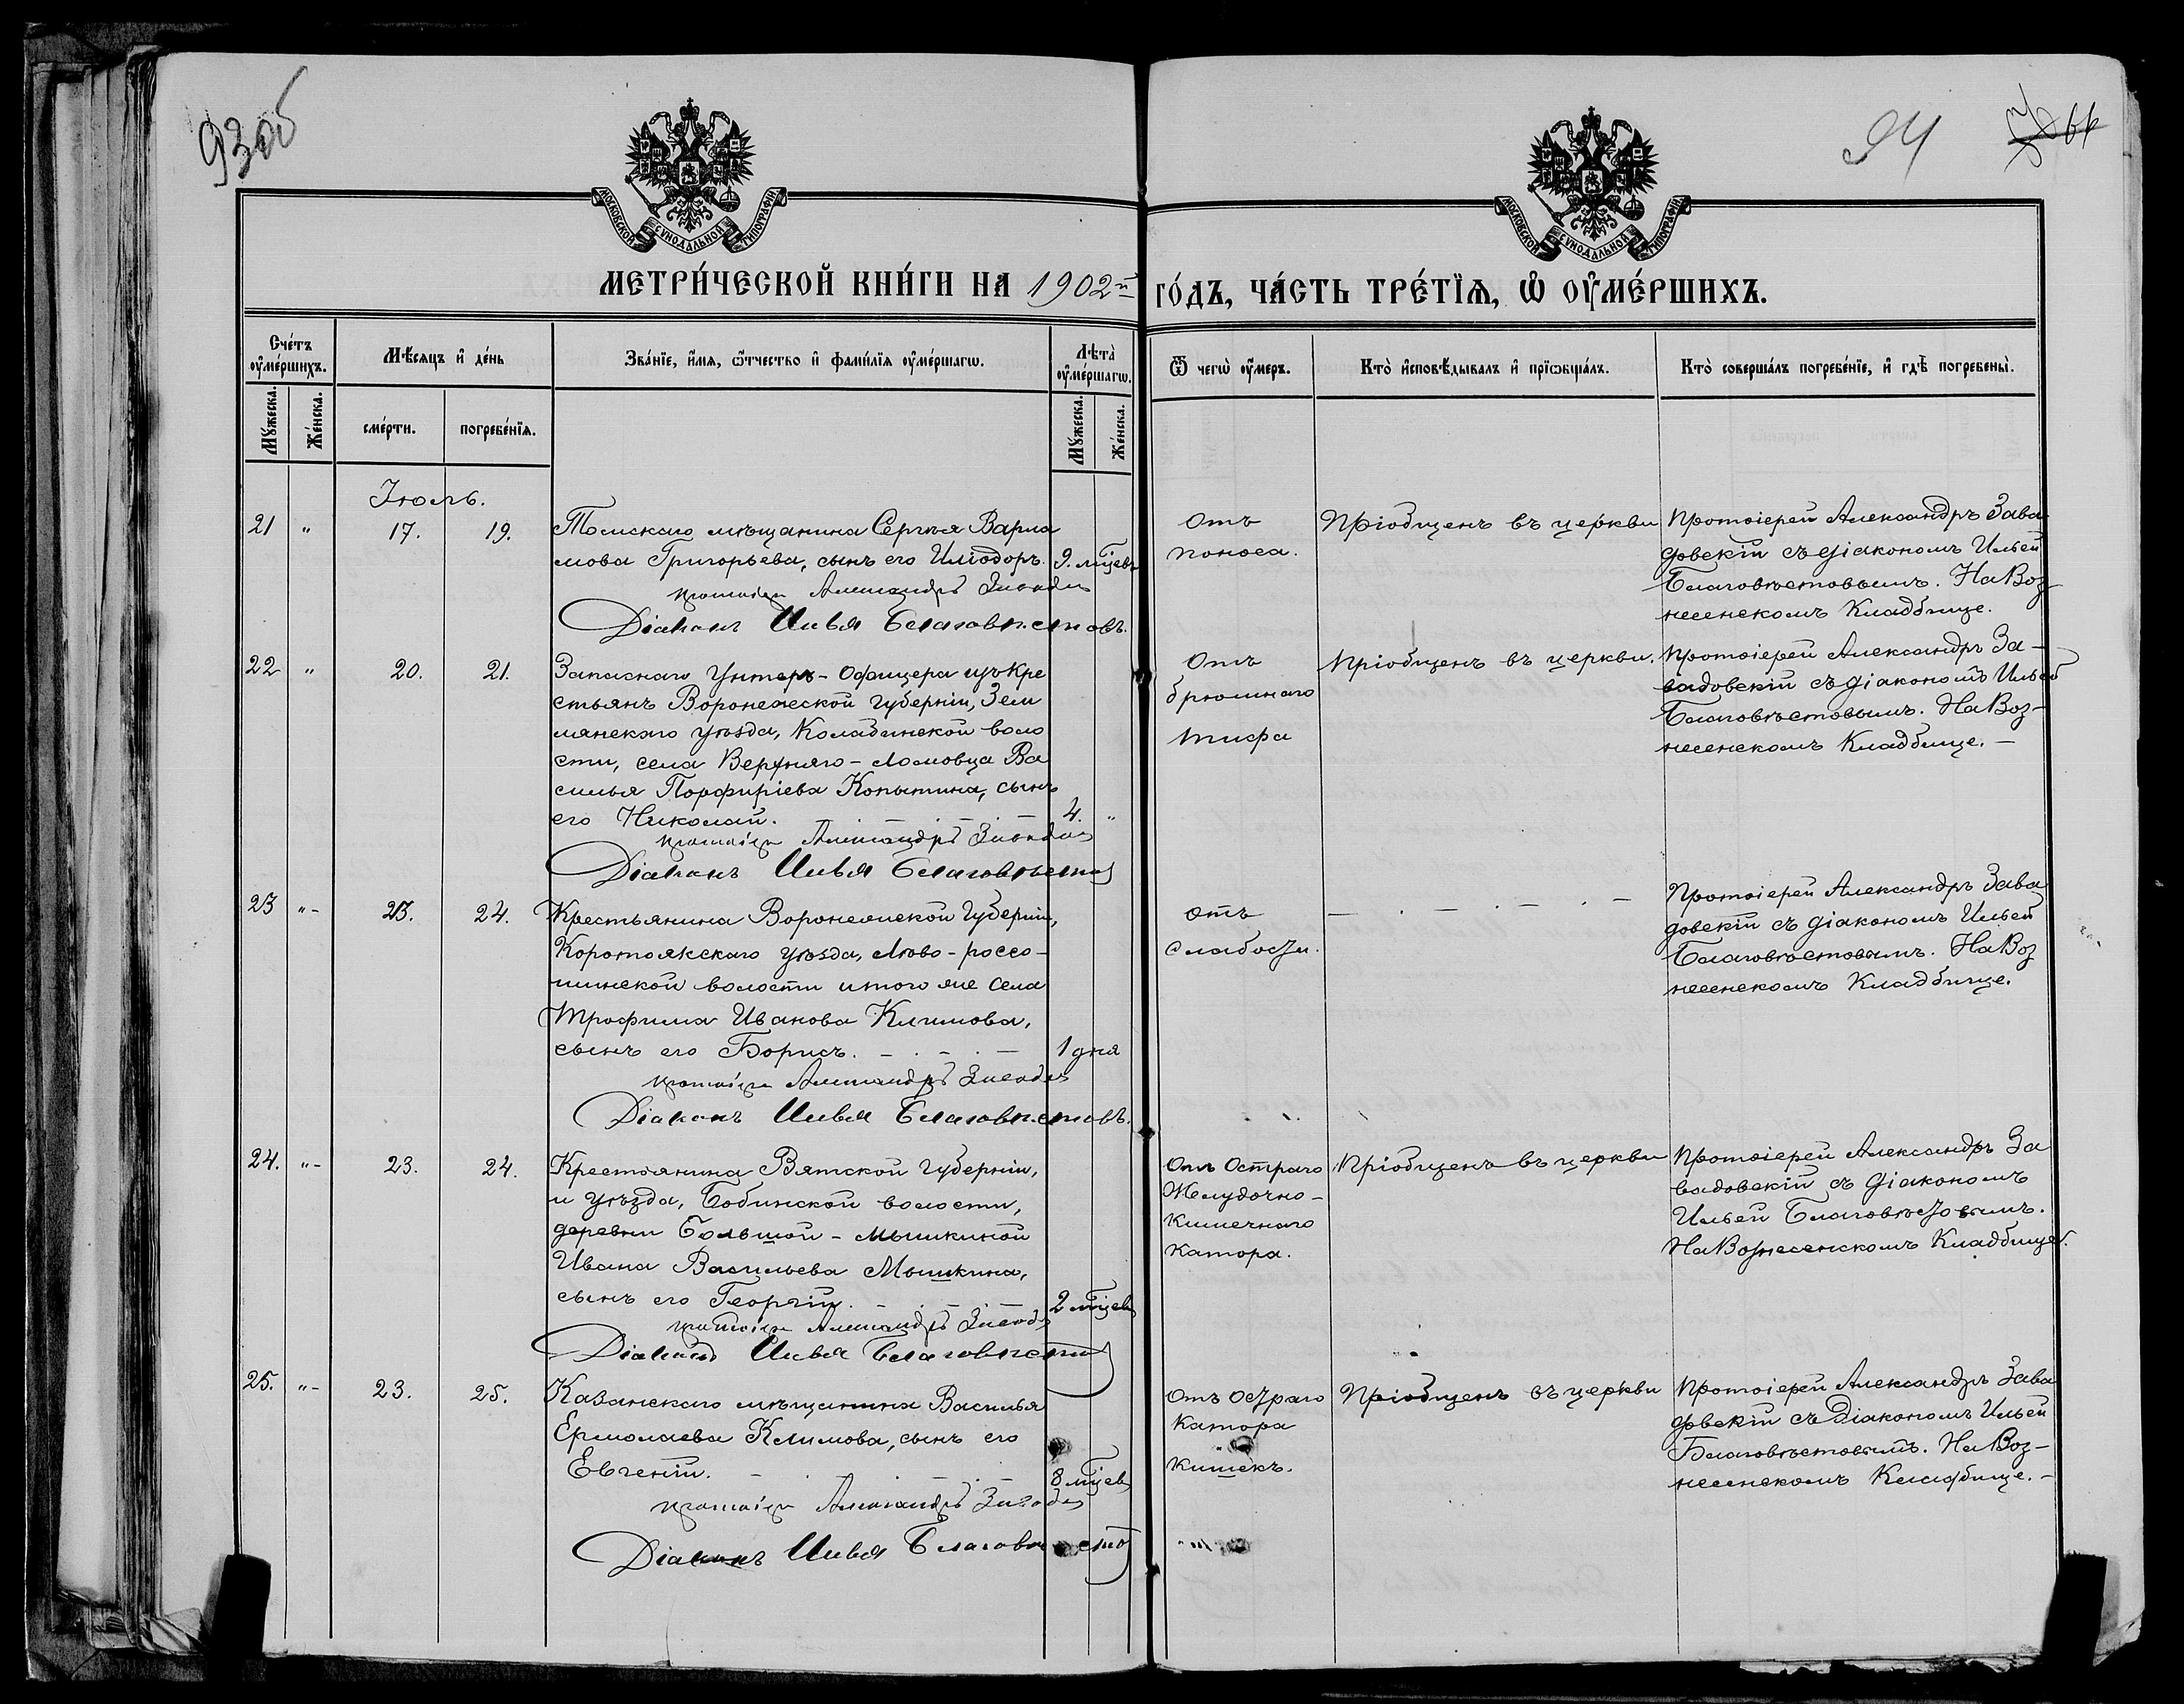 93об
94
66
МОСКОВСКОЙ СѴНОДАЛЬНОЙ ТИПОГРАФІИ
МОСКОВСКОЙ СѴНОДАЛЬНОЙ ТИПОГРАФІИ
МЕТРИ́ЧЕСКОЙ КНИ́ГИ НА 1902й го́дъ, ча́сть тре́тїѧ, ѡ҆ оу҆ме́ршихъ.
Сче́тъ оу҆ме́ршихъ.
Мѣ́сяцъ и҆ де́нь
Зва́нїе, и҆́мя, ѻ҆́тчество и҆ фами́лїя оу҆ме́ршагѡ.
Лѣта̀ оу҆ме́ршагѡ.
Ѿ чегѡ̀ оу҆́меръ.
Кто̀ и҆сповѣ́дывалъ и҆ прїѡбща́лъ.
Кто̀ соверша́лъ погребе́нїе, и҆ гдѣ̀ погребены̀.
Му́жеска.
Же́нска.
сме́рти.
погребе́нїя.
Му́жеска.
Же́нска.
Іюль.
21 " 17. 19.
Томскаго мѣщанина Сергѣя Варла
мова Григорьева, сынъ его Иліодоръ. 9. мцевъ
протоіерей Александръ Заводов
Діаконъ Илья Благовѣстовъ.
Отъ
поноса.
Пріобщенъ въ церкви
Протоіерей Александръ Зава
довскій съ діакономъ Ильей
Благовѣстовымъ. На Воз
несенскомъ Кладбище.
22 " 20. 21.
Запаснаго Унтеръ-Офицера изъ Кре
стьянъ Воронежской Губерніи, Зем
лянскаго уѣзда, Коладинской воло
сти, села Верхняго-Ломовца Ва
силья Порфиріева Копытина, сынъ
его Николай. 4. "
протоіерей Александръ Заводов
Діаконъ Илья Благовѣстов
Отъ
брюшнаго
тифа
Пріобщенъ въ церкви.
Протоіерей Александръ За-
вадовскій съ діакономъ Ильей
Благовѣстовымъ. На Воз-
несенскомъ Кладбище. –
23 "- 23. 24.
Крестьянина Воронежской Губерніи,
Коротоякскаго уѣзда, Ново-россо-
шинской волости и того же села
Трофима Иванова Климова,
сынъ его Борисъ. 1 дня
протоіерей Александръ Заводов
Діаконъ Илья Благовѣстовъ.
отъ
слабости.
Протоіерей Александръ Зава
довскій съ діакономъ Ильей
Благовѣстовымъ. На Воз
несенскомъ Кладбище.
24. "- 23. 24.
Крестьянина Вятской Губерніи,
и уѣзда, Бобинской волости,
деревни Большой-Мышкиной
Ивана Васильева Мышкина,
сынъ его Георгій. 2 мцев
протоіерей Александръ Завод
Діаконъ Илья Благовѣстов
Отъ Остраго
Желудочно-
Кишечнаго
Катора.
Пріобщенъ въ церкви
Протоіерей Александръ За
вадовскій съ діакономъ
Ильей Благовѣстовымъ.
На Вознесенскомъ Кладбище.
25. "- 23. 25.
Казанскаго мѣщанина Василья
Ермолаева Климова, сынъ его
Евгеній. 8 мцев
протоіерей Александръ Заводов
Діаконъ Илья Благовѣстов
Отъ Остраго
Катора
Кишекъ.
Пріобщенъ въ церкви
Протоіерей Александръ Зава
довскій съ Діакономъ Ильей
Благовѣстовымъ. На Воз-
несенскомъ Кладбище. –